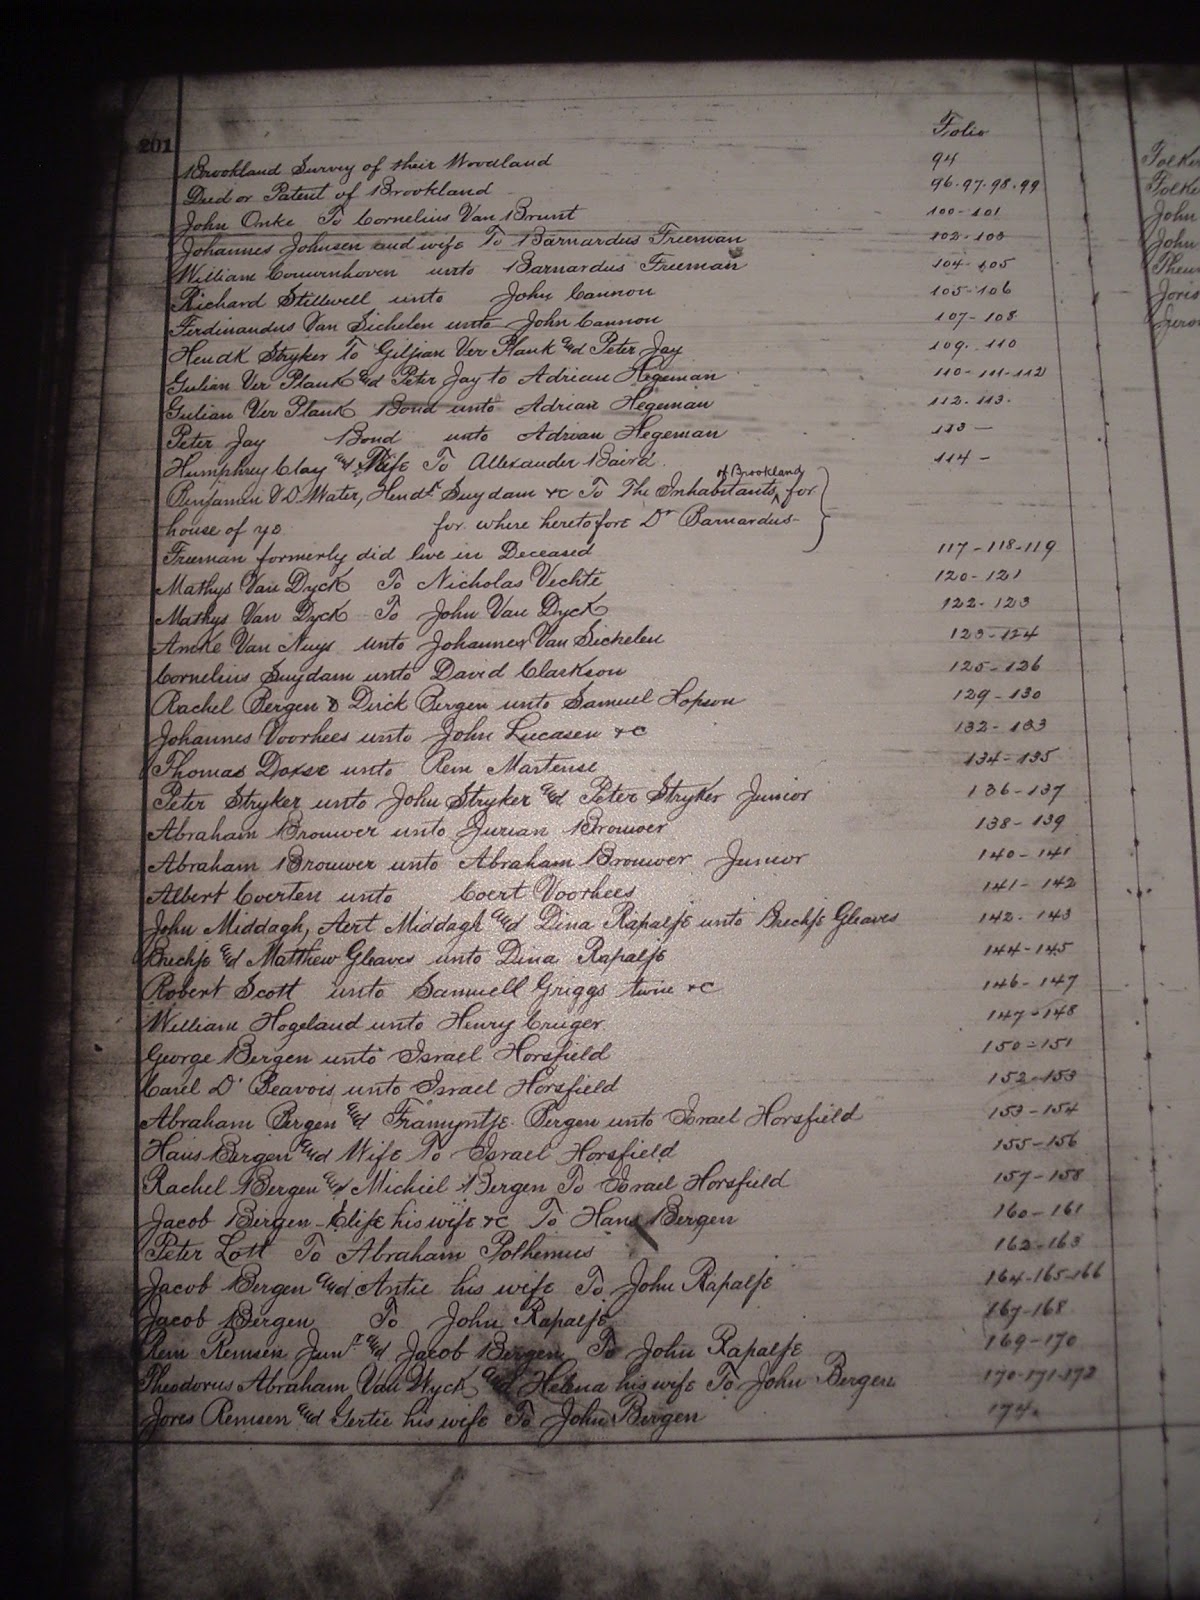 201
Folio
Brookland Survey of their Woodland 94
Deed or Patent of Brookland 96-97-98-99
John Onke To Cornelius Van Brunt 100-101
Johannes Johnsen and wife To Barnardus Freeman 102-103
William Couwenhoven unto Barnardus Freeman 104-105
Richard Stillwell unto John Cannon 105-106
Ferdinandus Van Sichelen unto John Cannon 107-108
Hendk Stryker To Giljian Ver Plank and Peter Jay 109-110
Gulian Ver Plank and Peter Jay to Adrian Hegeman 110-111-112
Gulian Ver Plank Bond unto Adrian Hegeman 112-113-
Peter Jay Bond unto Adrian Hegeman 113-
Humphrey Clay and Wife To Allexander Baird 114-
Benjamin V D Water, Hendk Suydam &c To The Inhabitants of Brookland for
house of ye for where heretofore Dr Barnardus-
Freeman formerly did live in Deceased 117-118-119
Mathys Van Dyck To Nicholas Vechte 120-121
Mathys Van Dyck To John Van Dyck 122-123
Anke Van Nuys unto Johannes Van Sichelen 123-124
Cornelius Suydam unto David Clarkson 125-126
Rachel Bergen & Dirck Bergen unto Samuel Hopson 129-130
Johannes Voorhees unto John Lucasen &c 132-133
Thomas Dorse unto Rem Martense 134-135
Peter Stryker unto John Stryker and Peter Stryker Junior 136-137
Abraham Brouwer unto Jurian Brouwer 138-139
Abraham Brouwer unto Abraham Brouwer Junior 140-141
Albert Coerten unto Coert Voorhees 141-142
John Middagh, Aert Middagh and Dina Rapalje unto Brechje Gleaves 142-143
Brechje and Matthew Gleaves unto Dina Rapalje 144-145
Robert Scott unto Samuell Griggs &c 146-147
William Hogeland unto Henry Cruger 147-148
George Bergen unto Israel Horsfield 150-151
Carel D' Beavois unto Israel Horsfield 152-153
Abraham Bergen and Framyntje Bergen unto Israel Horsfield 153-154
Hans Bergen and Wife To Israel Horsfield 155-156
Rachel Bergen and Michiel Bergen To Israel Horsfield 157-158
Jacob Bergen - Elije his wife &c To Hans Bergen 160-161
Peter Lott To Abraham Polhemus 162-163
Jacob Bergen and Antie his wife To John Rapalje 164-165-166
Jacob Bergen To John Rapalje 167-168
Rem Remsen Junr and Jacob Bergen To John Rapalje 169-170
Theodorus Abraham Van Wyck and Helena his wife To John Bergen 170-171-172
Jores Remsen and Gertie his wife To John Bergen 174.
John
John